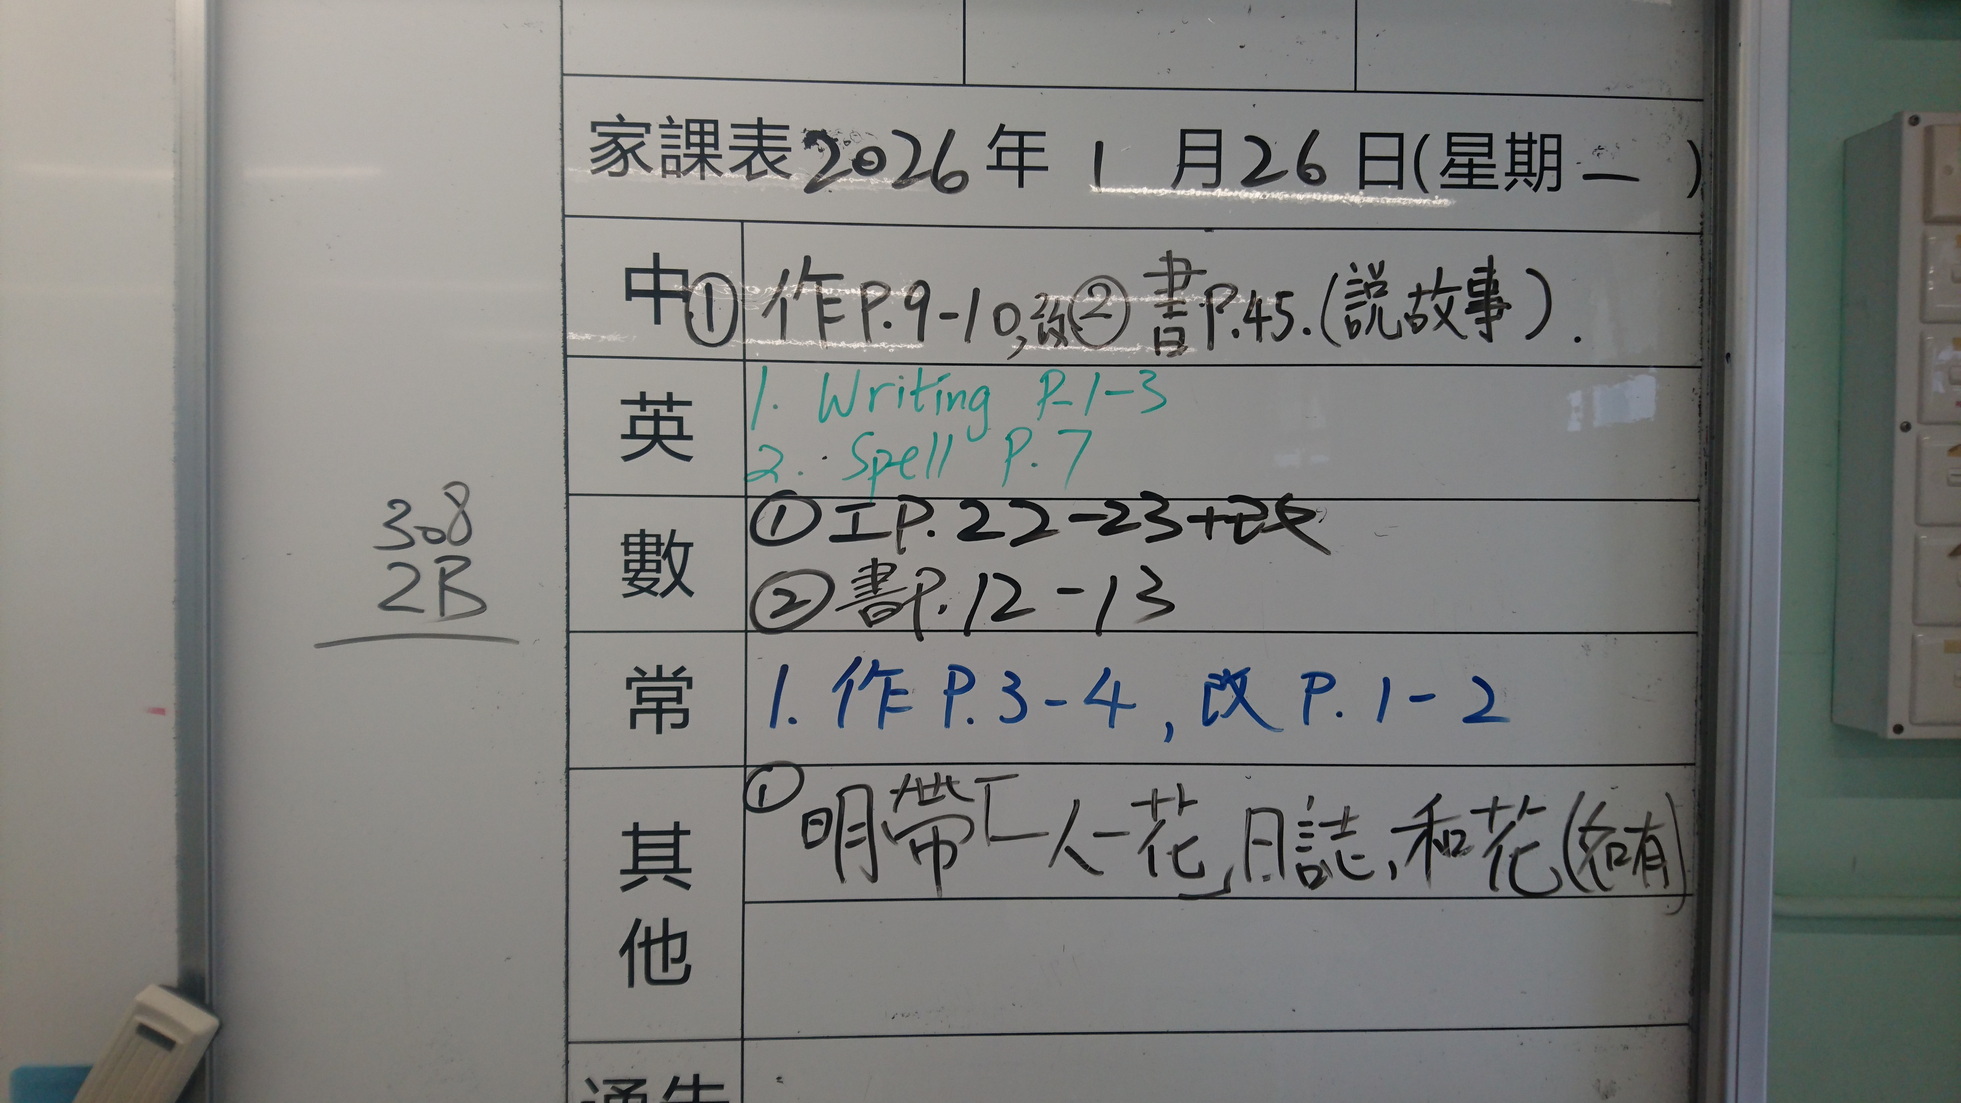 家課表2026年1月26日(星期一)
中 ①作P.9-10,改②書P.45.(説故事).
英 1. Writing P.1-3
2. Spell P.7
數 ①工P.22-23+改
②書P.12-13
308
2B
常 1. 作P.3-4, 改P.1-2
其他 ①明帶「一人一花」日誌,和花(如有)
通告